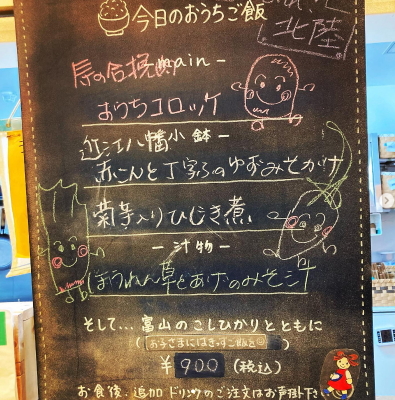 今日のおうちご飯
北陸
main-
おうちコロッケ
近江八幡小鉢-
赤こんと丁字ふのゆずみそがけ
菊芋入りひじき煮
-汁物-
ほうれん草とあげのみそ汁
そして…富山のこしひかりとともに
¥900(税込)
お食後、追加ドリンクのご注文はお声掛け下